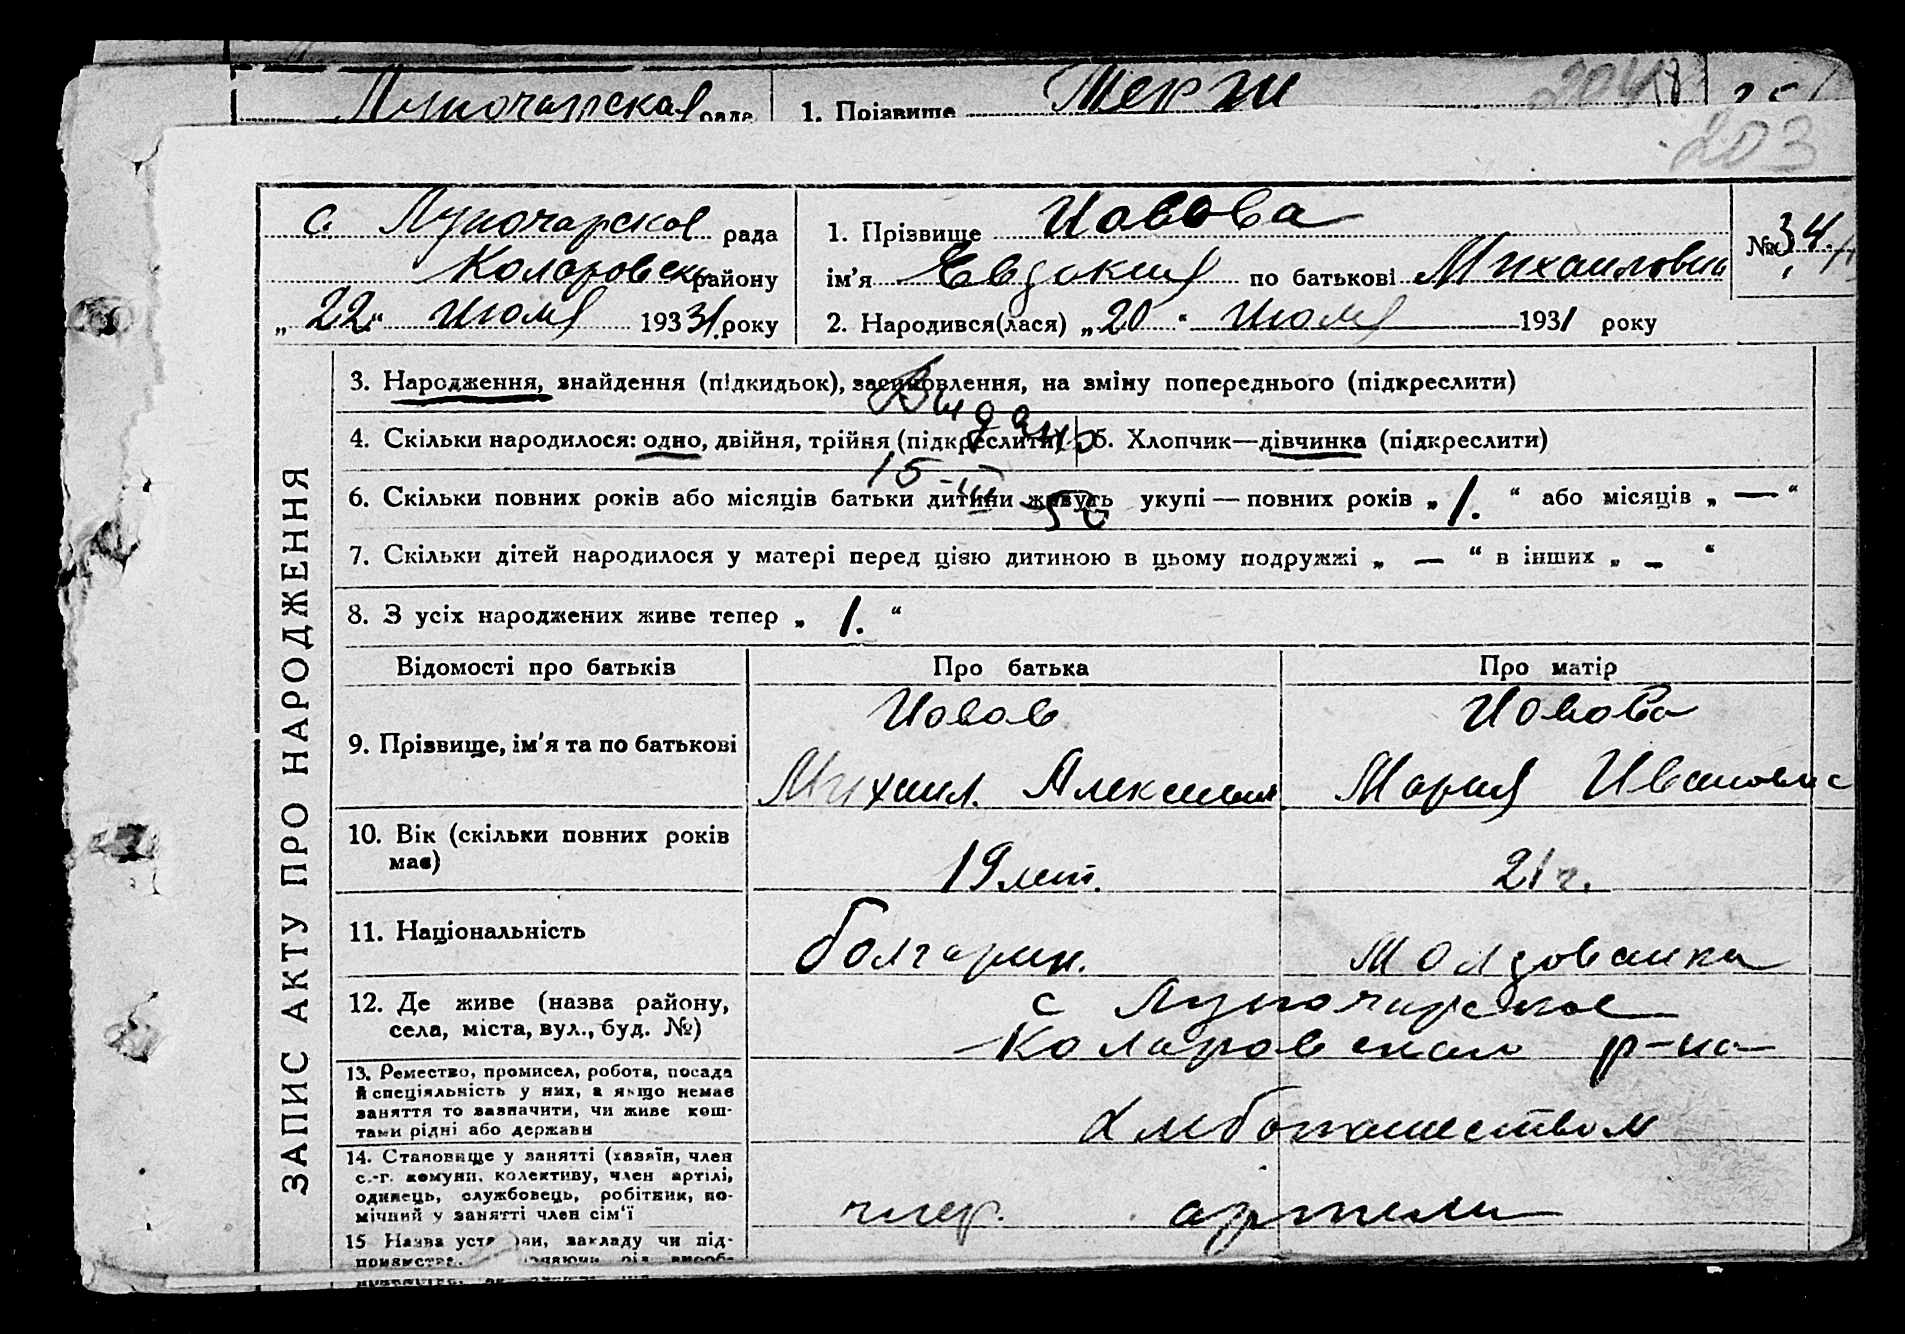 Луночарская рада
1. Прізвище Терзи
204
203
с. Луночарское рада
Коларовск району
„22“ Июля 1931. року
1. Прізвище Иовова
№ 34.
ім'я Евдокия по батькові Михаиловна
2. Народився(лася) „20“ Июля 1931 року
ЗАПИС АКТУ ПРО НАРОДЖЕННЯ
3. Народження, знайдення (підкидьок), засиновлення, на зміну попереднього (підкреслити)
Видано
4. Скільки народилося: одно, двійня, трійня (підкреслити)
5. Хлопчик—дівчинка (підкреслити)
15-III-50
6. Скільки повних років або місяців батьки дитини живуть укупі — повних років „1.“ або місяців „—“
7. Скільки дітей народилося у матері перед цією дитиною в цьому подружжі „—“ в інших „—“
8. З усіх народжених живе тепер „1.“
Відомості про батьків
Про батька
Про матір
9. Прізвище, ім'я та по батькові
Иовов
Михаил. Алексеевич
Иовова
Мария Ивановна
10. Вік (скільки повних років має)
19 лет.
21 г.
11. Національність
болгарин.
молдованка
12. Де живе (назва району, села, міста, вул., буд. №)
с Луночарское
Коларовского р-на
13. Ремество, промисел, робота, посада
й спеціяльність у них, а якщо немає
заняття то зазначити, чи живе кош-
тами рідні або держави
Хлебопашеством
14. Становище у занятті (хазяїн, член
с.-г. комуни, колективу, член артілі,
одинець, службовець, робітник, по-
мічний у занятті член сім'ї
член артели
15 Назва установи, закладу чи під-